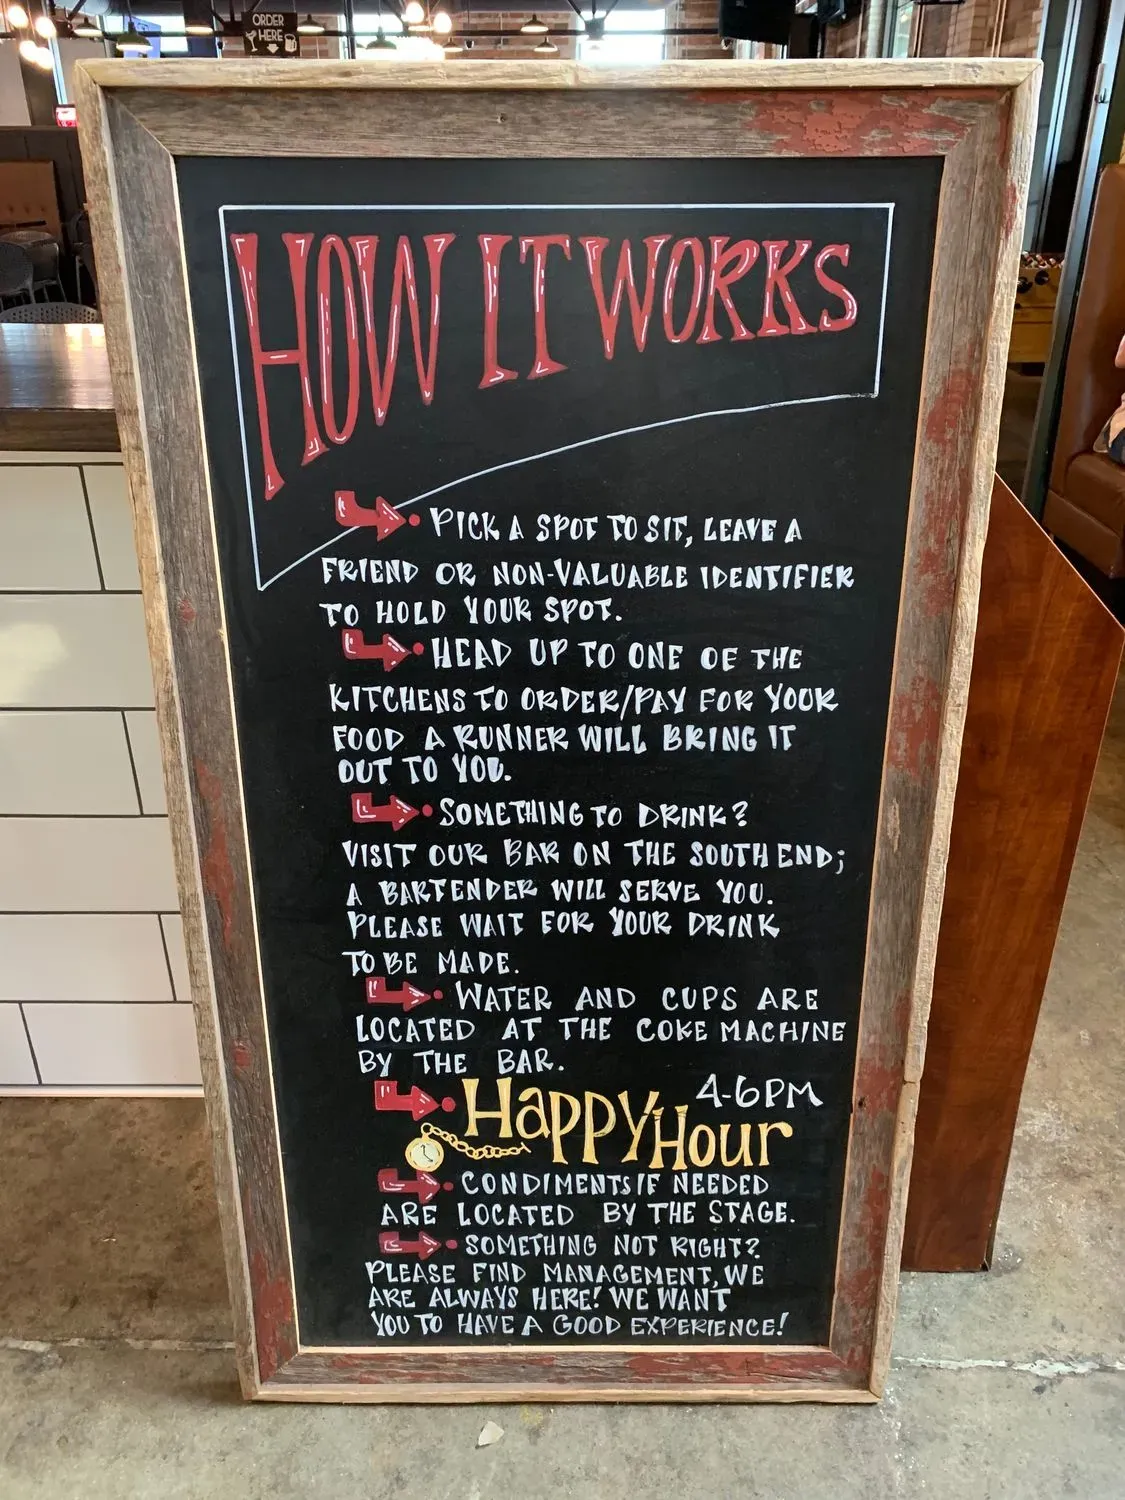 ORDER
HERE
HOW IT WORKS
PICK A SPOT TO SIT, LEAVE A
FRIEND OR NON-VALUABLE IDENTIFIER
TO HOLD YOUR SPOT.
HEAD UP TO ONE OF THE
KITCHENS TO ORDER/PAY FOR YOUR
FOOD A RUNNER WILL BRING IT
OUT TO YOU.
SOMETHING TO DRINK?
VISIT OUR BAR ON THE SOUTH END;
A BARTENDER WILL SERVE YOU.
PLEASE WAIT FOR YOUR DRINK
TO BE MADE.
WATER AND CUPS ARE
LOCATED AT THE COKE MACHINE
BY THE BAR.
HAPPY HOUR 4-6PM
CONDIMENTS IF NEEDED
ARE LOCATED BY THE STAGE.
SOMETHING NOT RIGHT?
PLEASE FIND MANAGEMENT, WE
ARE ALWAYS HERE! WE WANT
YOU TO HAVE A GOOD EXPERIENCE!